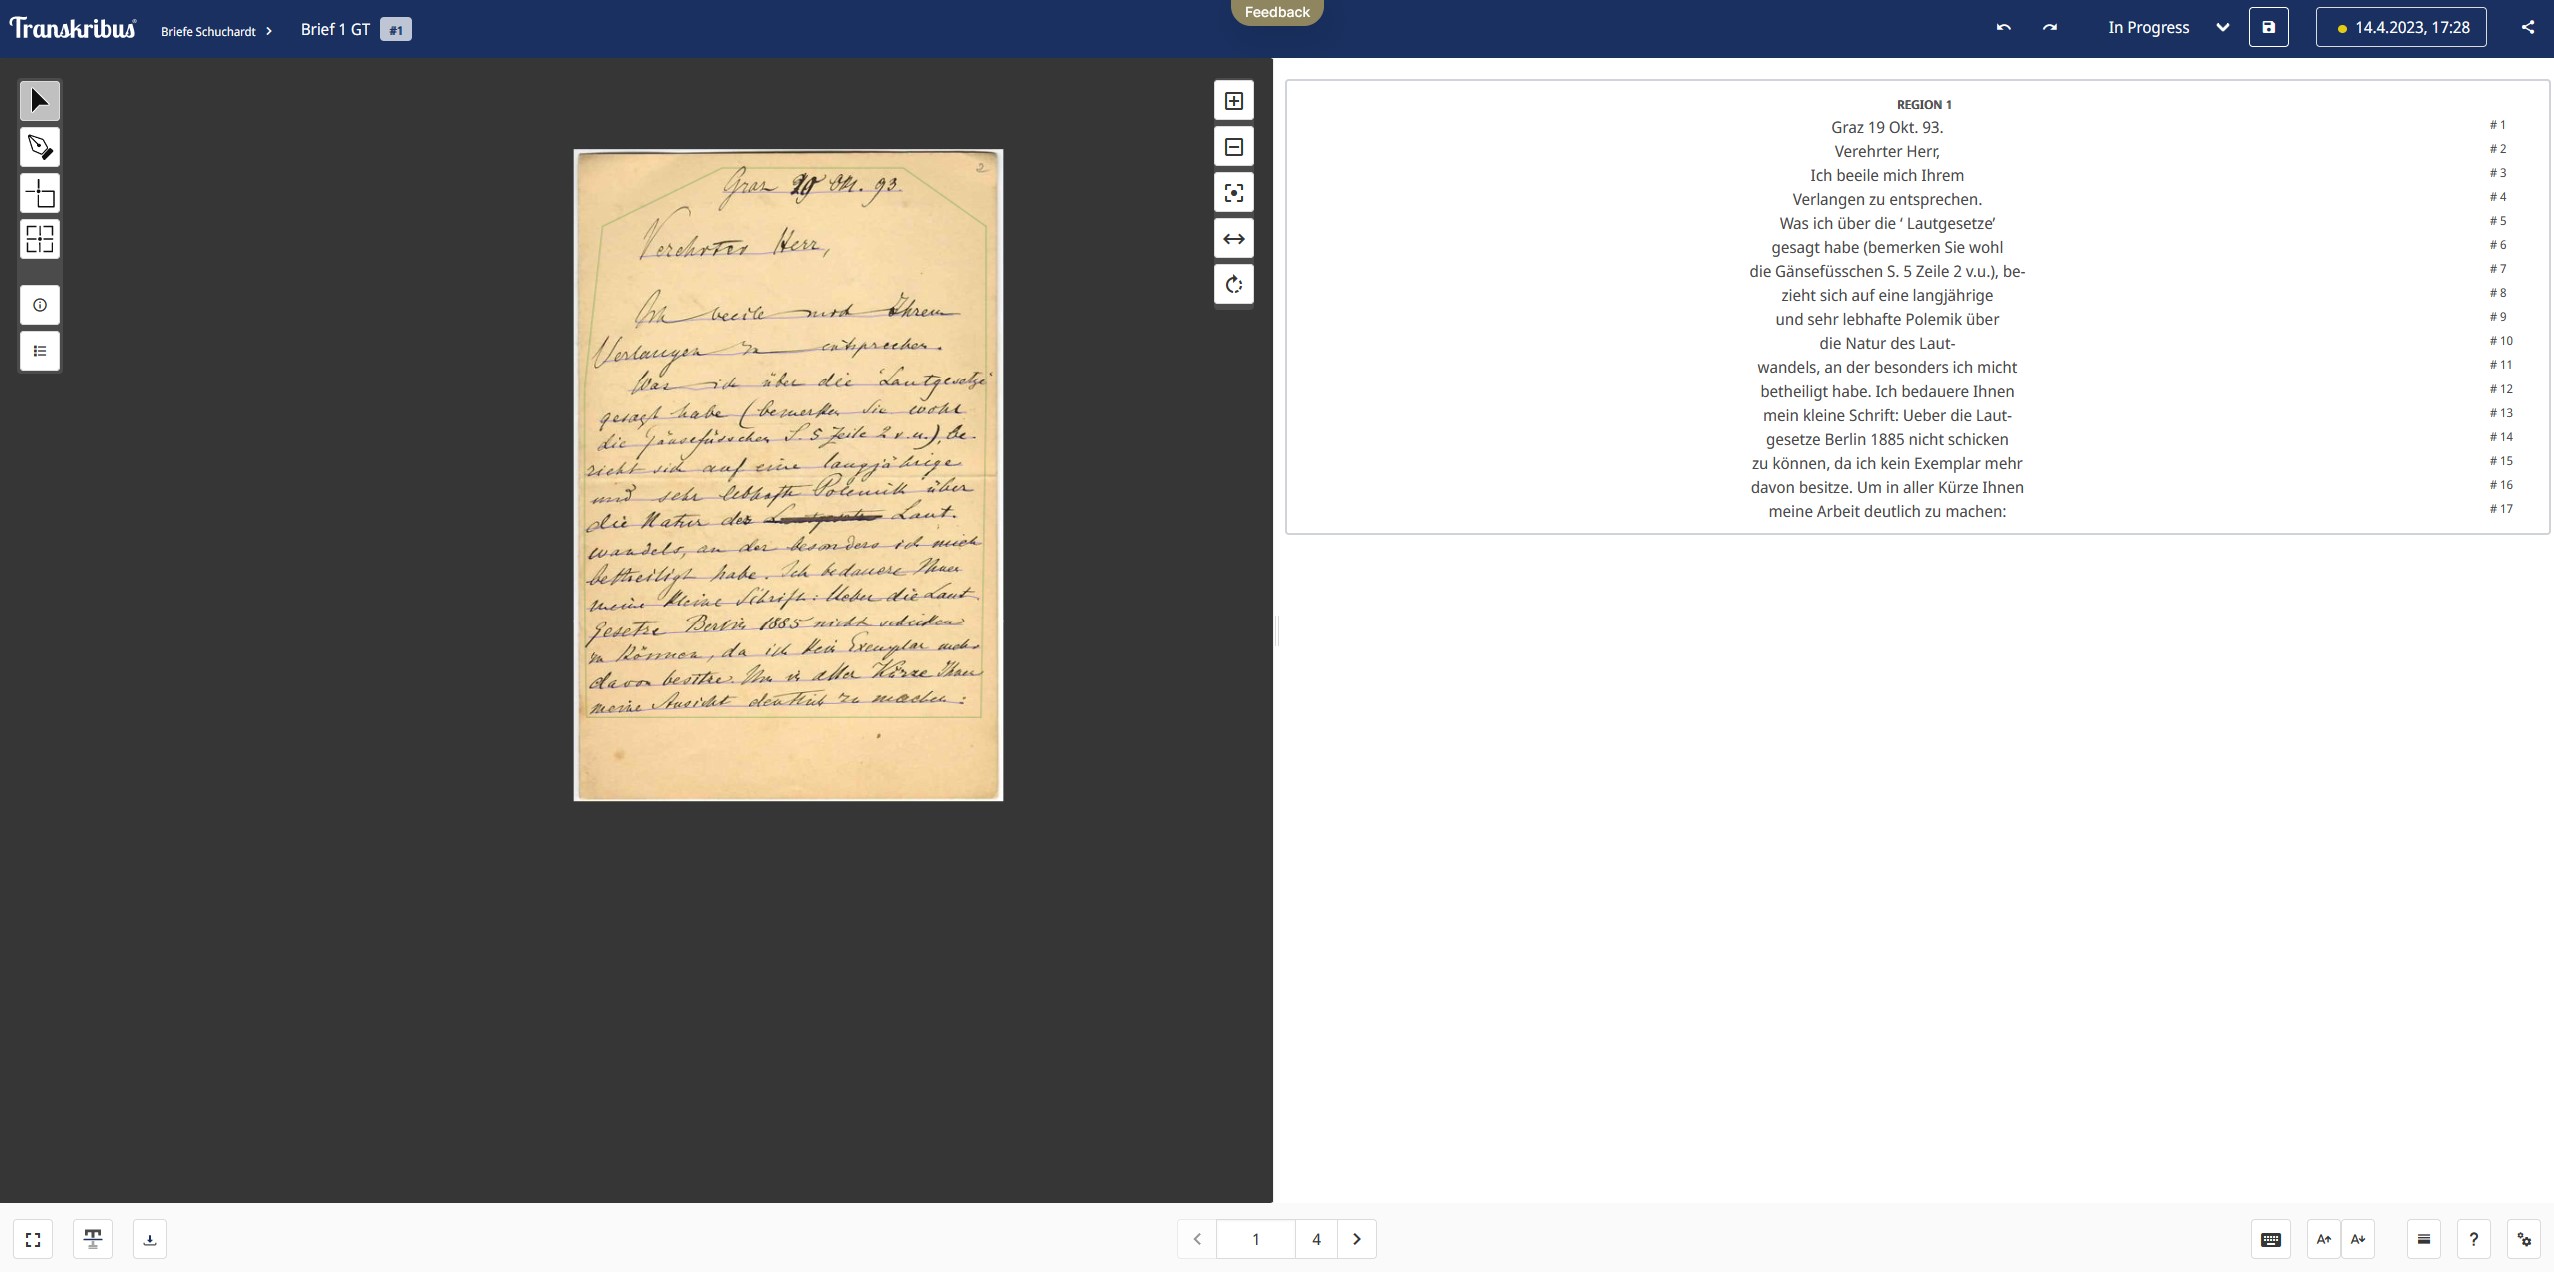 Transkribus
Briefe Schuchardt
Brief 1 GT
#1
Feedback
In Progress
14.4.2023, 17:28
2
Graz 20 Okt. 93.
Verehrter Herr,
Ich beeile mich Ihrem
Verlangen zu entsprechen.
Was ich über die 'Lautgesetze'
gesagt habe (bemerken Sie wohl
die Gänsefüsschen S. 5 Zeile 2 v.u.), be-
zieht sich auf eine langjährige
und sehr lebhafte Polemik über
die Natur des Laut-
wandels, an der besonders ich mich
betheiligt habe. Ich bedauere Ihnen
meine kleine Schrift: Ueber die Laut-
gesetze Berlin 1885 nicht schicken
zu können, da ich kein Exemplar mehr
davon besitze. Um in aller Kürze Ihnen
meine Ansicht deutlich zu machen:
REGION 1
Graz 19 Okt. 93. #1
Verehrter Herr, #2
Ich beeile mich Ihrem #3
Verlangen zu entsprechen. #4
Was ich über die ‘ Lautgesetze’ #5
gesagt habe (bemerken Sie wohl #6
die Gänsefüsschen S. 5 Zeile 2 v.u.), be- #7
zieht sich auf eine langjährige #8
und sehr lebhafte Polemik über #9
die Natur des Laut- #10
wandels, an der besonders ich micht #11
betheiligt habe. Ich bedauere Ihnen #12
mein kleine Schrift: Ueber die Laut- #13
gesetze Berlin 1885 nicht schicken #14
zu können, da ich kein Exemplar mehr #15
davon besitze. Um in aller Kürze Ihnen #16
meine Arbeit deutlich zu machen: #17
1 4
A A ?